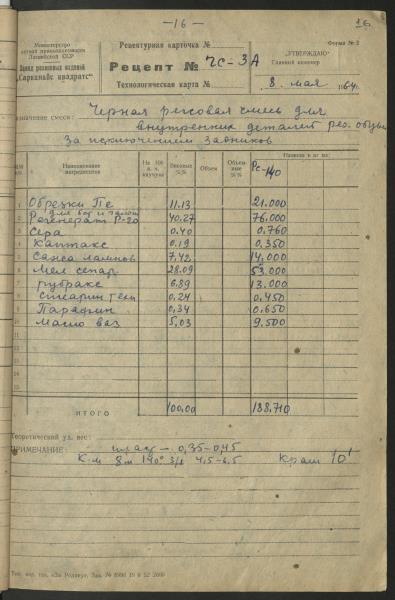 — 16 —
16
Министерство
легкой промышленности
Латвийской ССР
Завод резиновых изделий
„Сарканайс квадратс“
Рецептурная карточка №
Рецепт № ЧС-3А
Технологическая карта №
Форма № 2
„УТВЕРЖДАЮ“
Главный инженер
8. мая 1964 г.
Назначение смеси: Черная рисовая смесь для
внутренних деталей рез. обуви
за исключением задников
Наименование ингредиентов
На 100 в. ч. каучука
Весовые %%
Объем
Объемные %%
Навеска в кг на:
Рс-140
1 Обрезки 11.13 21.000
2 Регенерат Р-20 40.27 76.000
3 Сера 0.40 0.760
4 Каптакс 0.19 0.350
5 Сажа ламповая 7,42 14,000
6 Мел сепар 28.09 53.000
7 рубракс 6.89 13.000
8 стеарин 0,24 0.450
9 Парафин 0,34 0.650
10 Масло ваз 5,03 9.500
11
12
13
14
15
ИТОГО 100,00 188.710
Теоретический уд. вес:
ПРИМЕЧАНИЕ: пласт — 0,35-0,45
К-м 8м 140° 4.5-6.5 10'